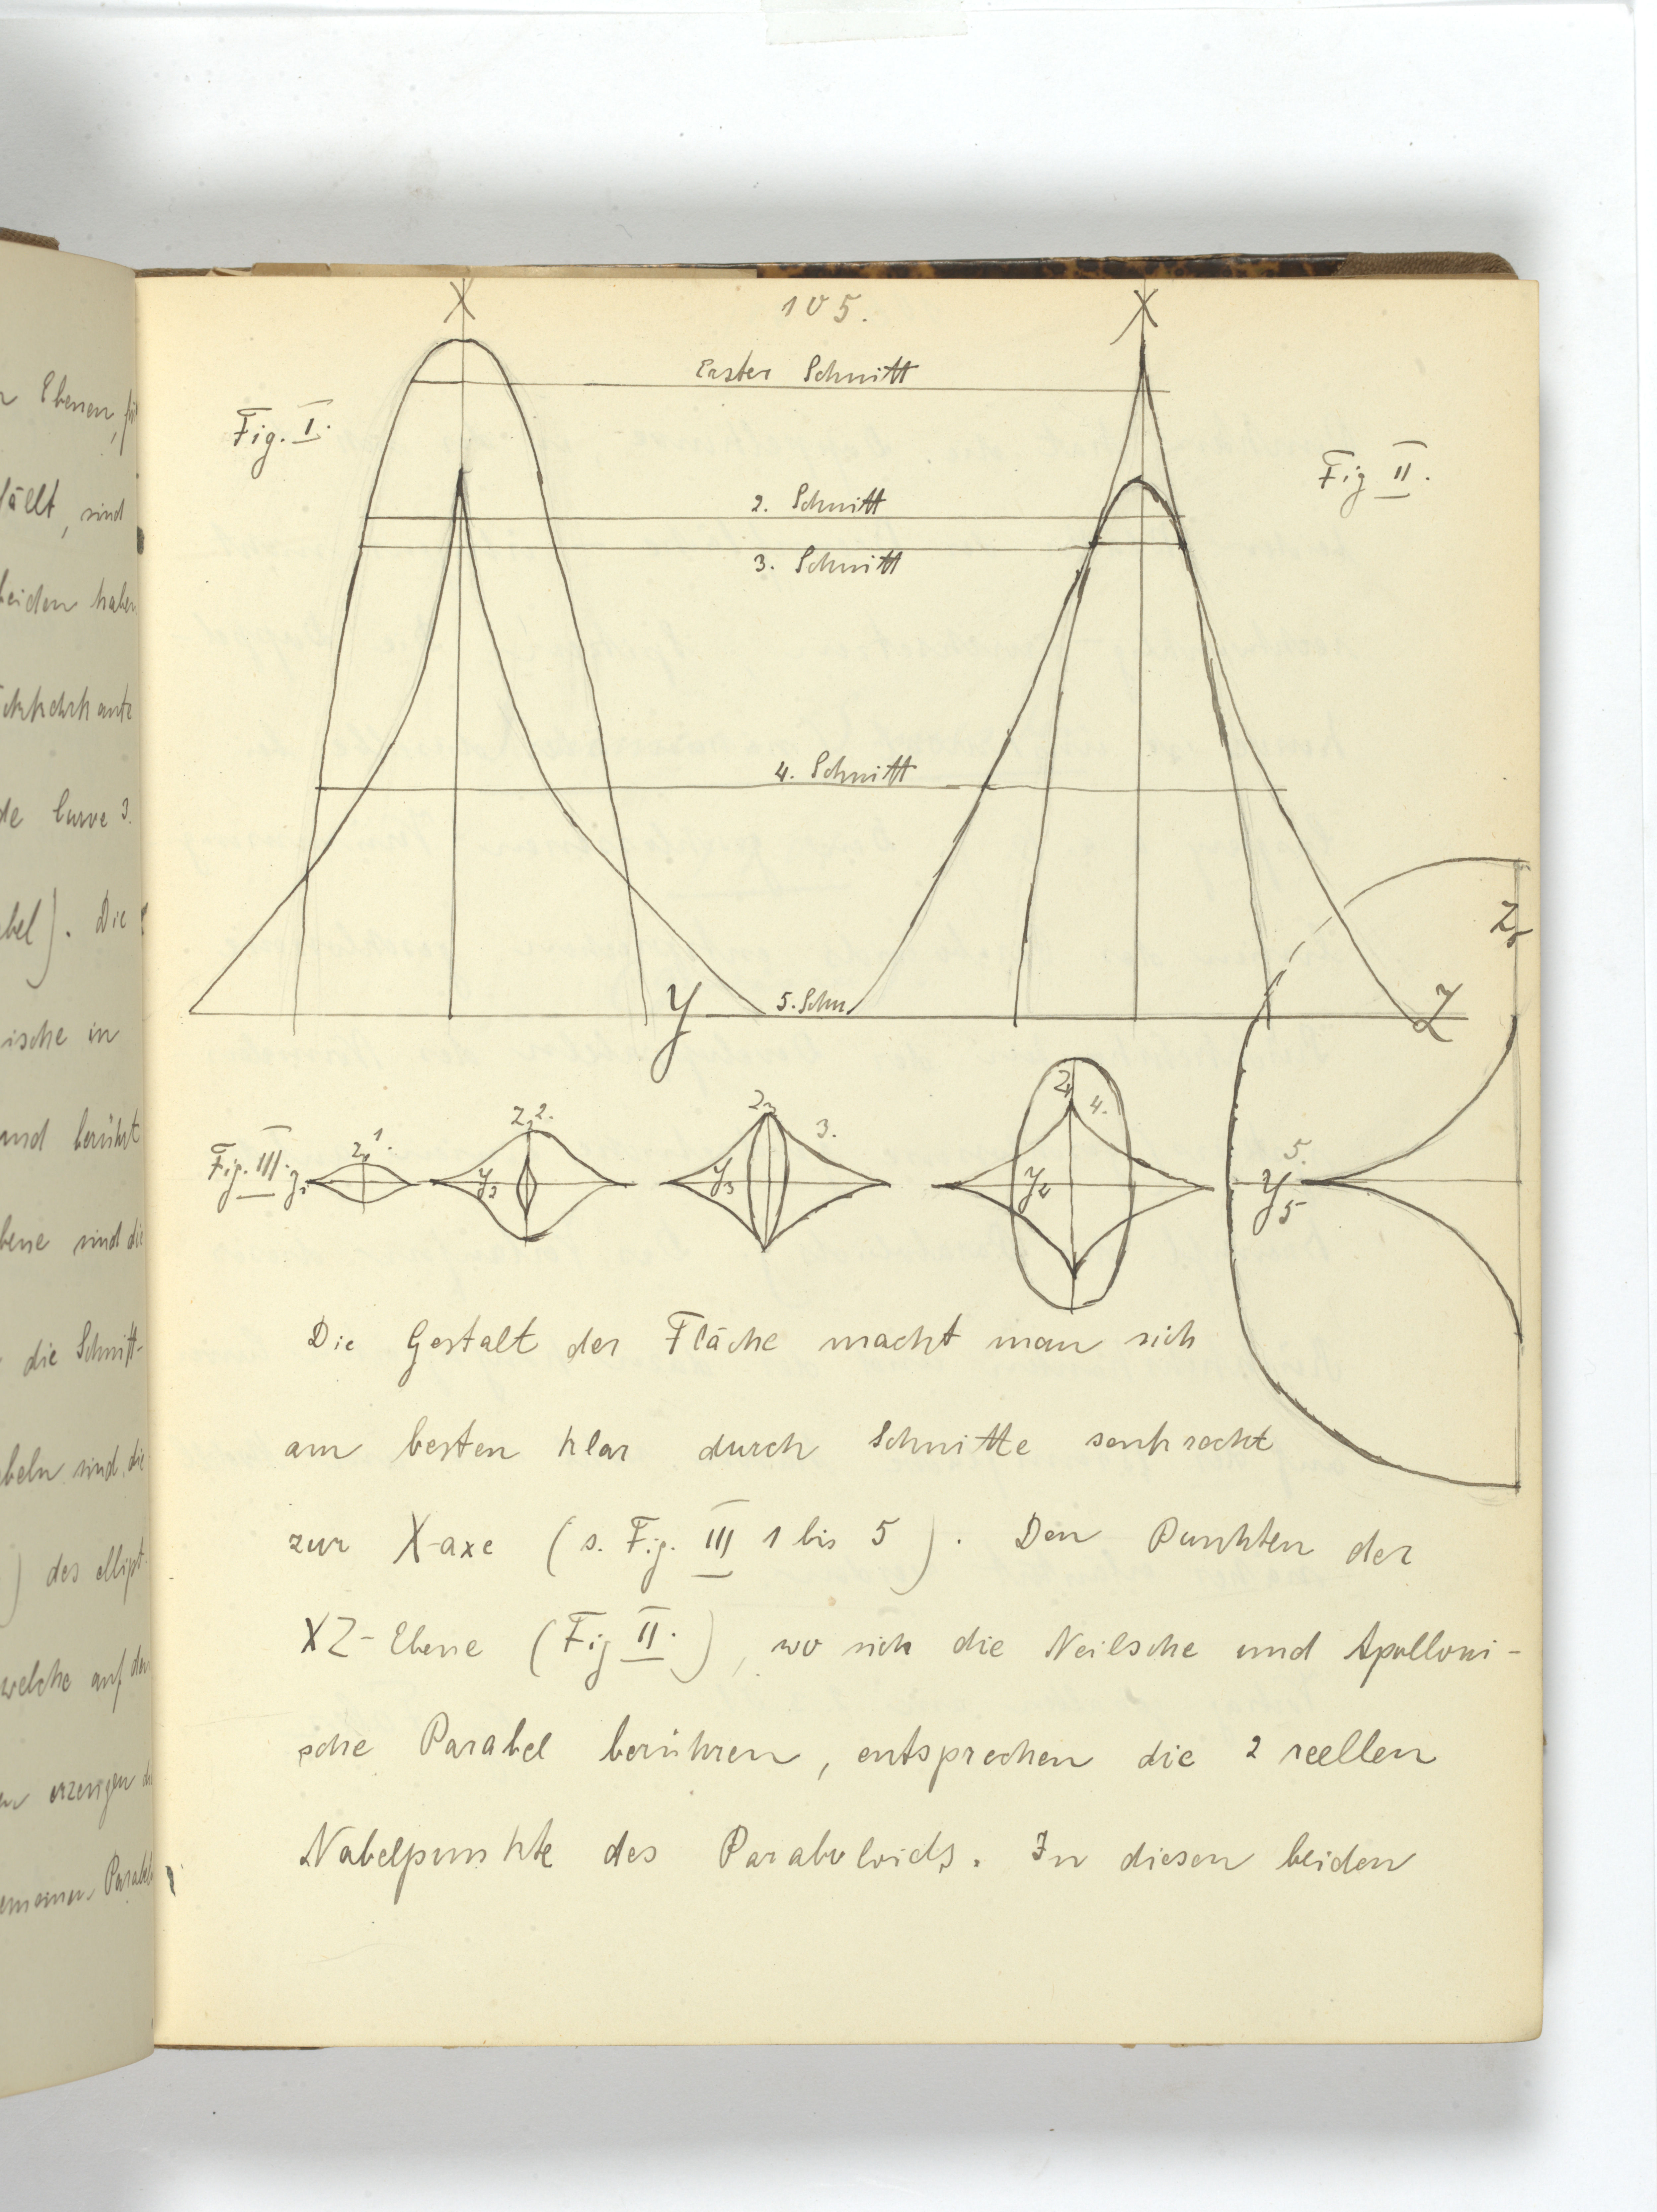 105.
X
X
Erster Schnitt
Fig. I.
Fig II.
2. Schnitt
3. Schnitt
4. Schnitt
Y
5. Schn.
Z
Z5
Fig. III.
Z1
1.
Z2
2.
Y2
Z3
3.
Y3
Z4
4.
Y4
5.
Y5
Die Gestalt der Fläche macht man sich
am besten klar durch Schnitte senkrecht
zur X-axe (s. Fig. III 1 bis 5). Den Punkten der
XZ-Ebene (Fig II.), wo sich die Neilsche und Apolloni-
sche Parabel berühren, entsprechen die 2 reellen
Nabelpunkte des Paraboloids. In diesen beiden
Ebenen,
fällt, sind
beiden haben
de Curve 3.
bel). Die
ische in
und berührt
bene sind die
die Schnitt-
beln sind, die
) des ellipt.
welche auf den
erzeugen
Parabel